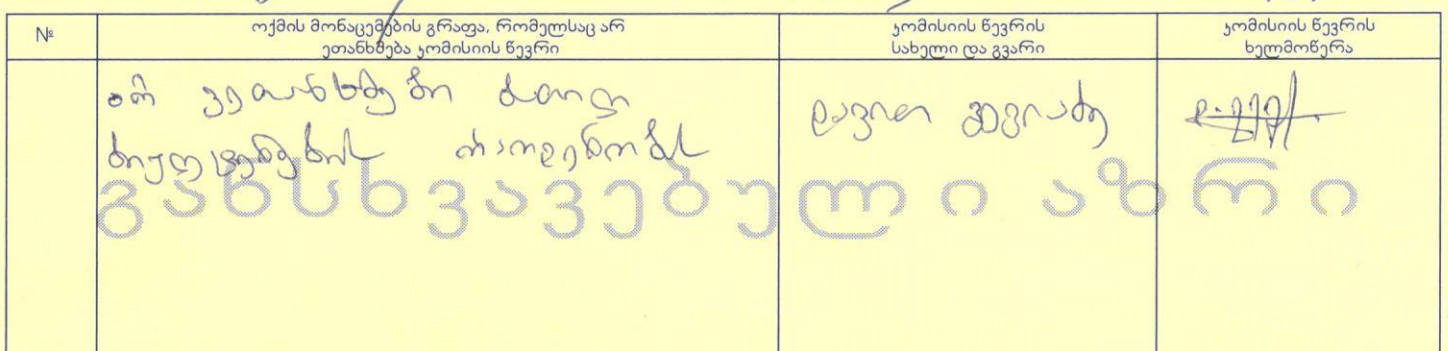 №
ოქმის მონაცემების გრაფა, რომელსაც არ
ეთანხმება კომისიის წევრი
კომისიის წევრის
სახელი და გვარი
კომისიის წევრის
ხელმოწერა
არ ვეთანხმები
ბიულეტენების რაოდენობას
დავით
განსხვავებული აზრი